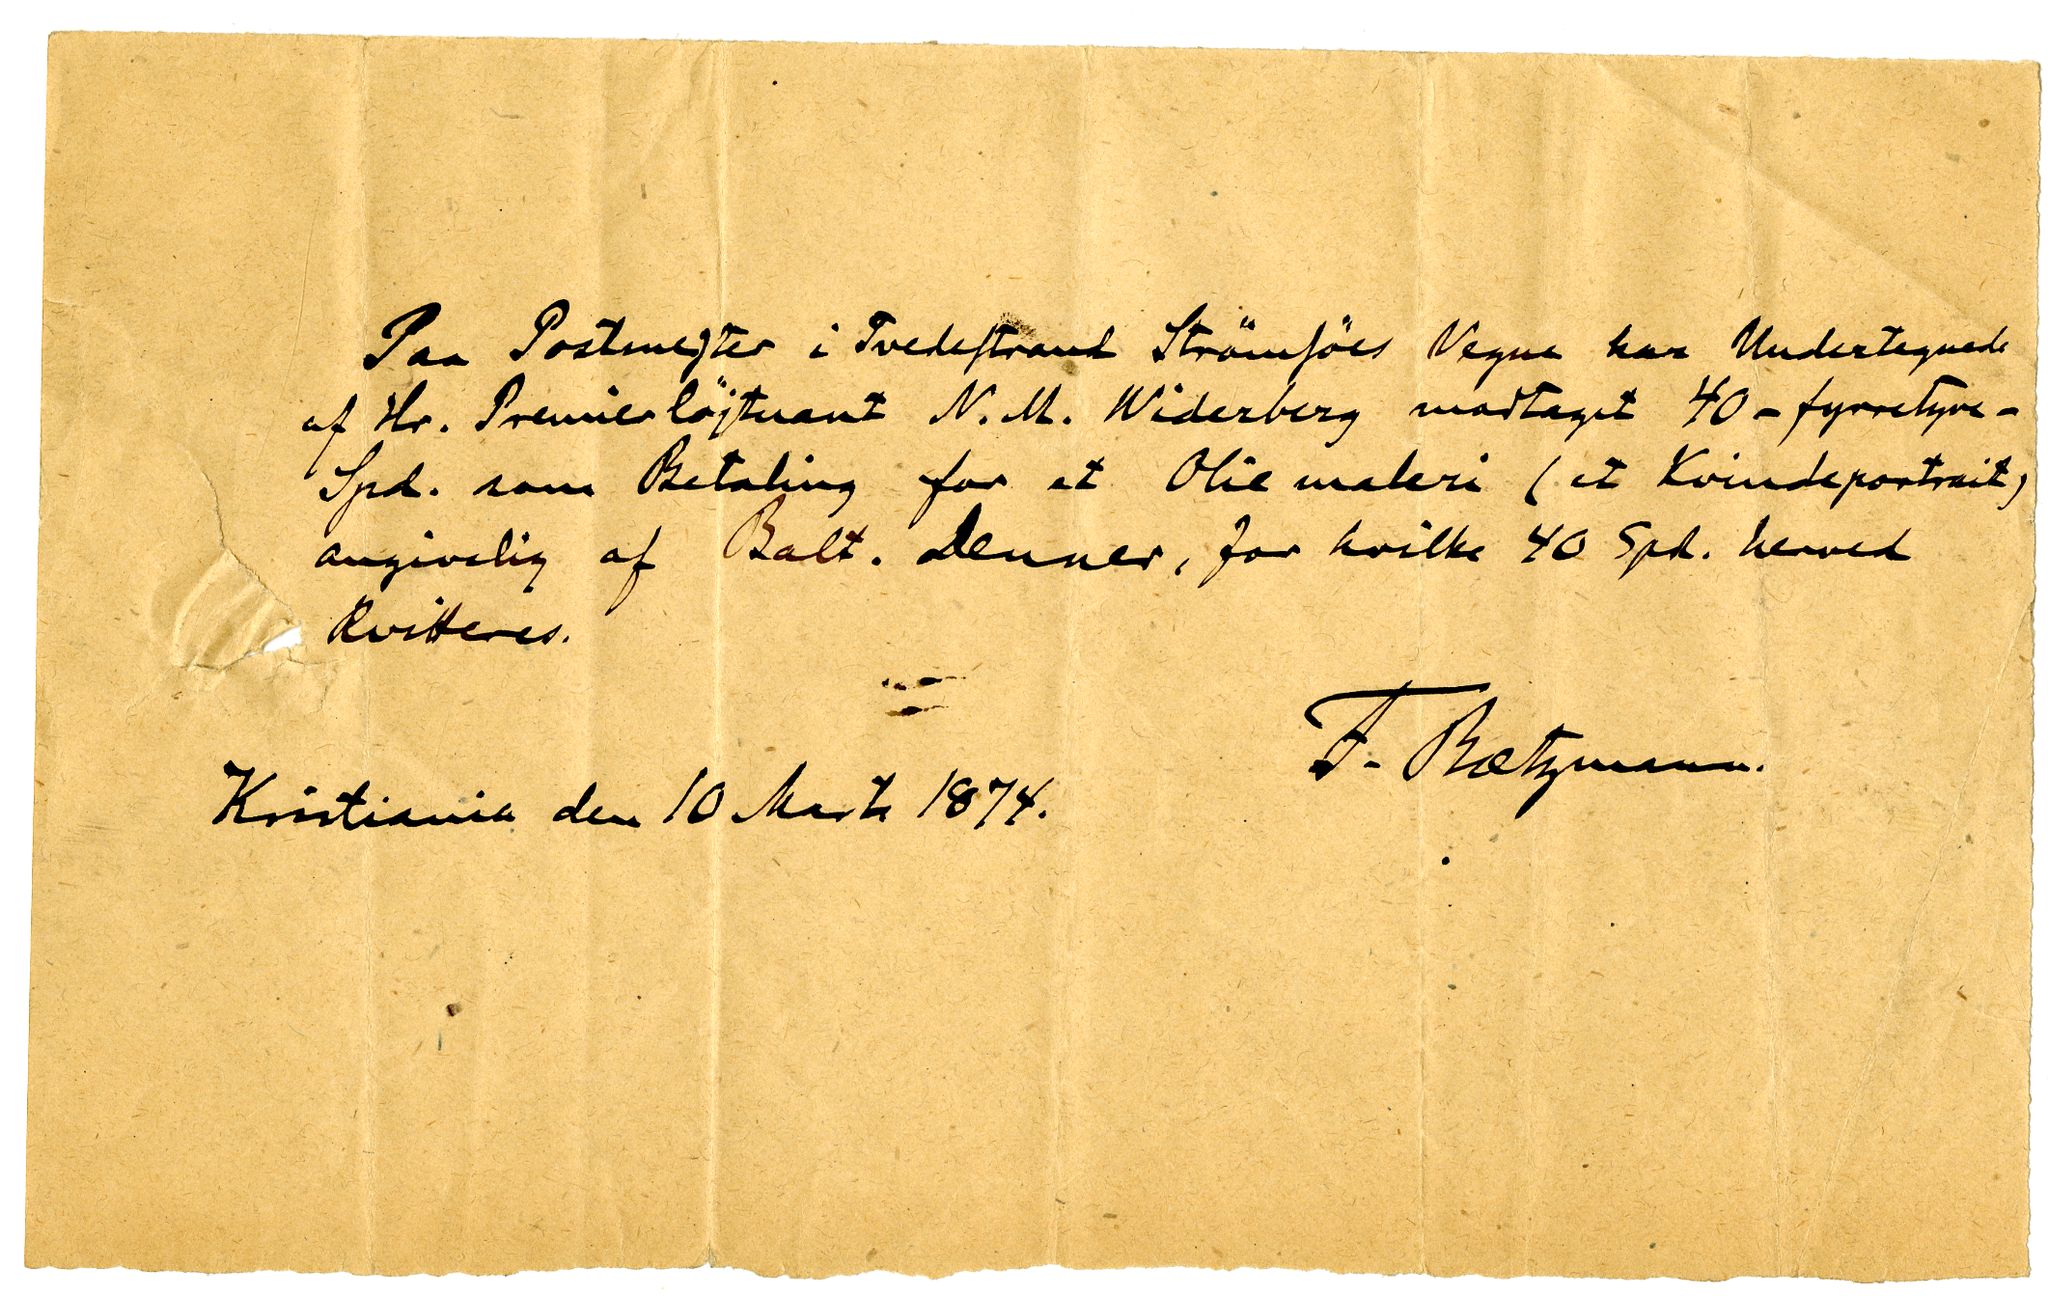 Paa Postmester i Tvedestrand Strömsöes Vegne har Undertegnede
af Hr. Premierlöjtnant N. M. Widerberg modtaget 40 - fyrretyve -
Spd. som Betaling for et Oliemaleri (et Kvindeportrait)
angivelig af Balt. Denner, for hvilke 40 Spd. herved
kvitteres.
F. Bætzmann.
Kristiania den 10 Marts 1874.